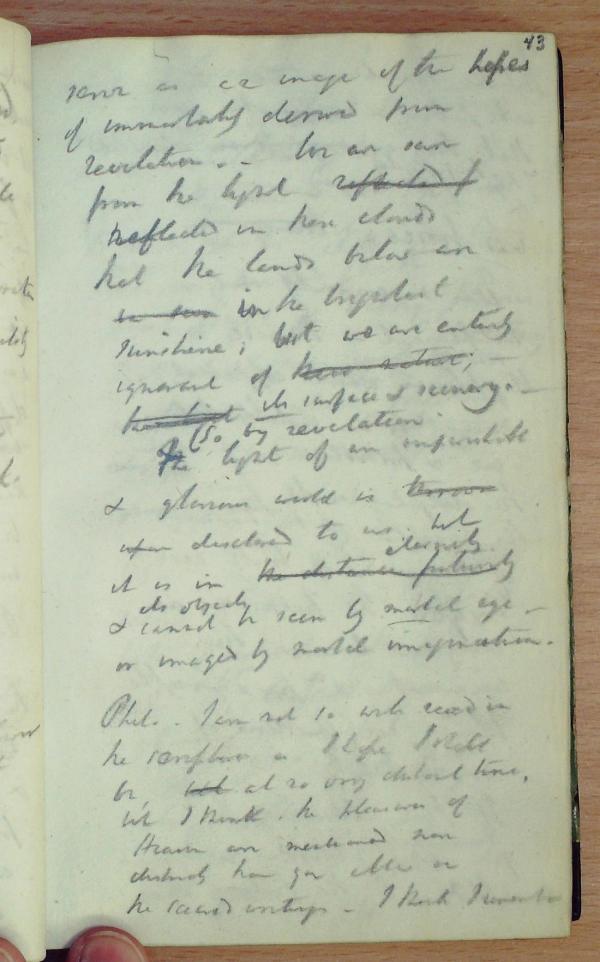 43
serve as an image of the hopes
of immortality derived from
revelation. - for we are sure
from the light reflected
reflected in these clouds
that the lands below are
in the brightest
sunshine; but we are entirely
ignorant of
its surface & scenery. -
So by revelation
The light of an imperishable
& glorious world is
disclosed to us but
it is in eternity
& its objects
cannot be seen by mortal eye -
or imaged by mortal imagination.
Phil. - I am not so well read in
the scriptures as I hope I shall
be at no very distant time,
but I think the pleasures of
Heaven are mentioned more
distinctly than you allow in
the sacred writings - I think I remember